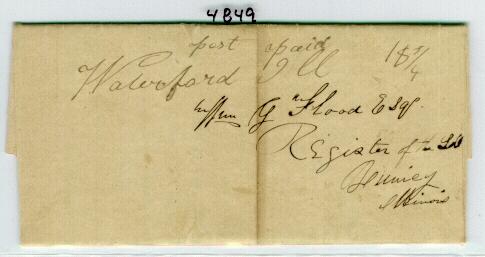 4849
post paid
Waterford Ill 18 3/4
Wm G Flood Esqr.
Register of the
Quincy
Illinois